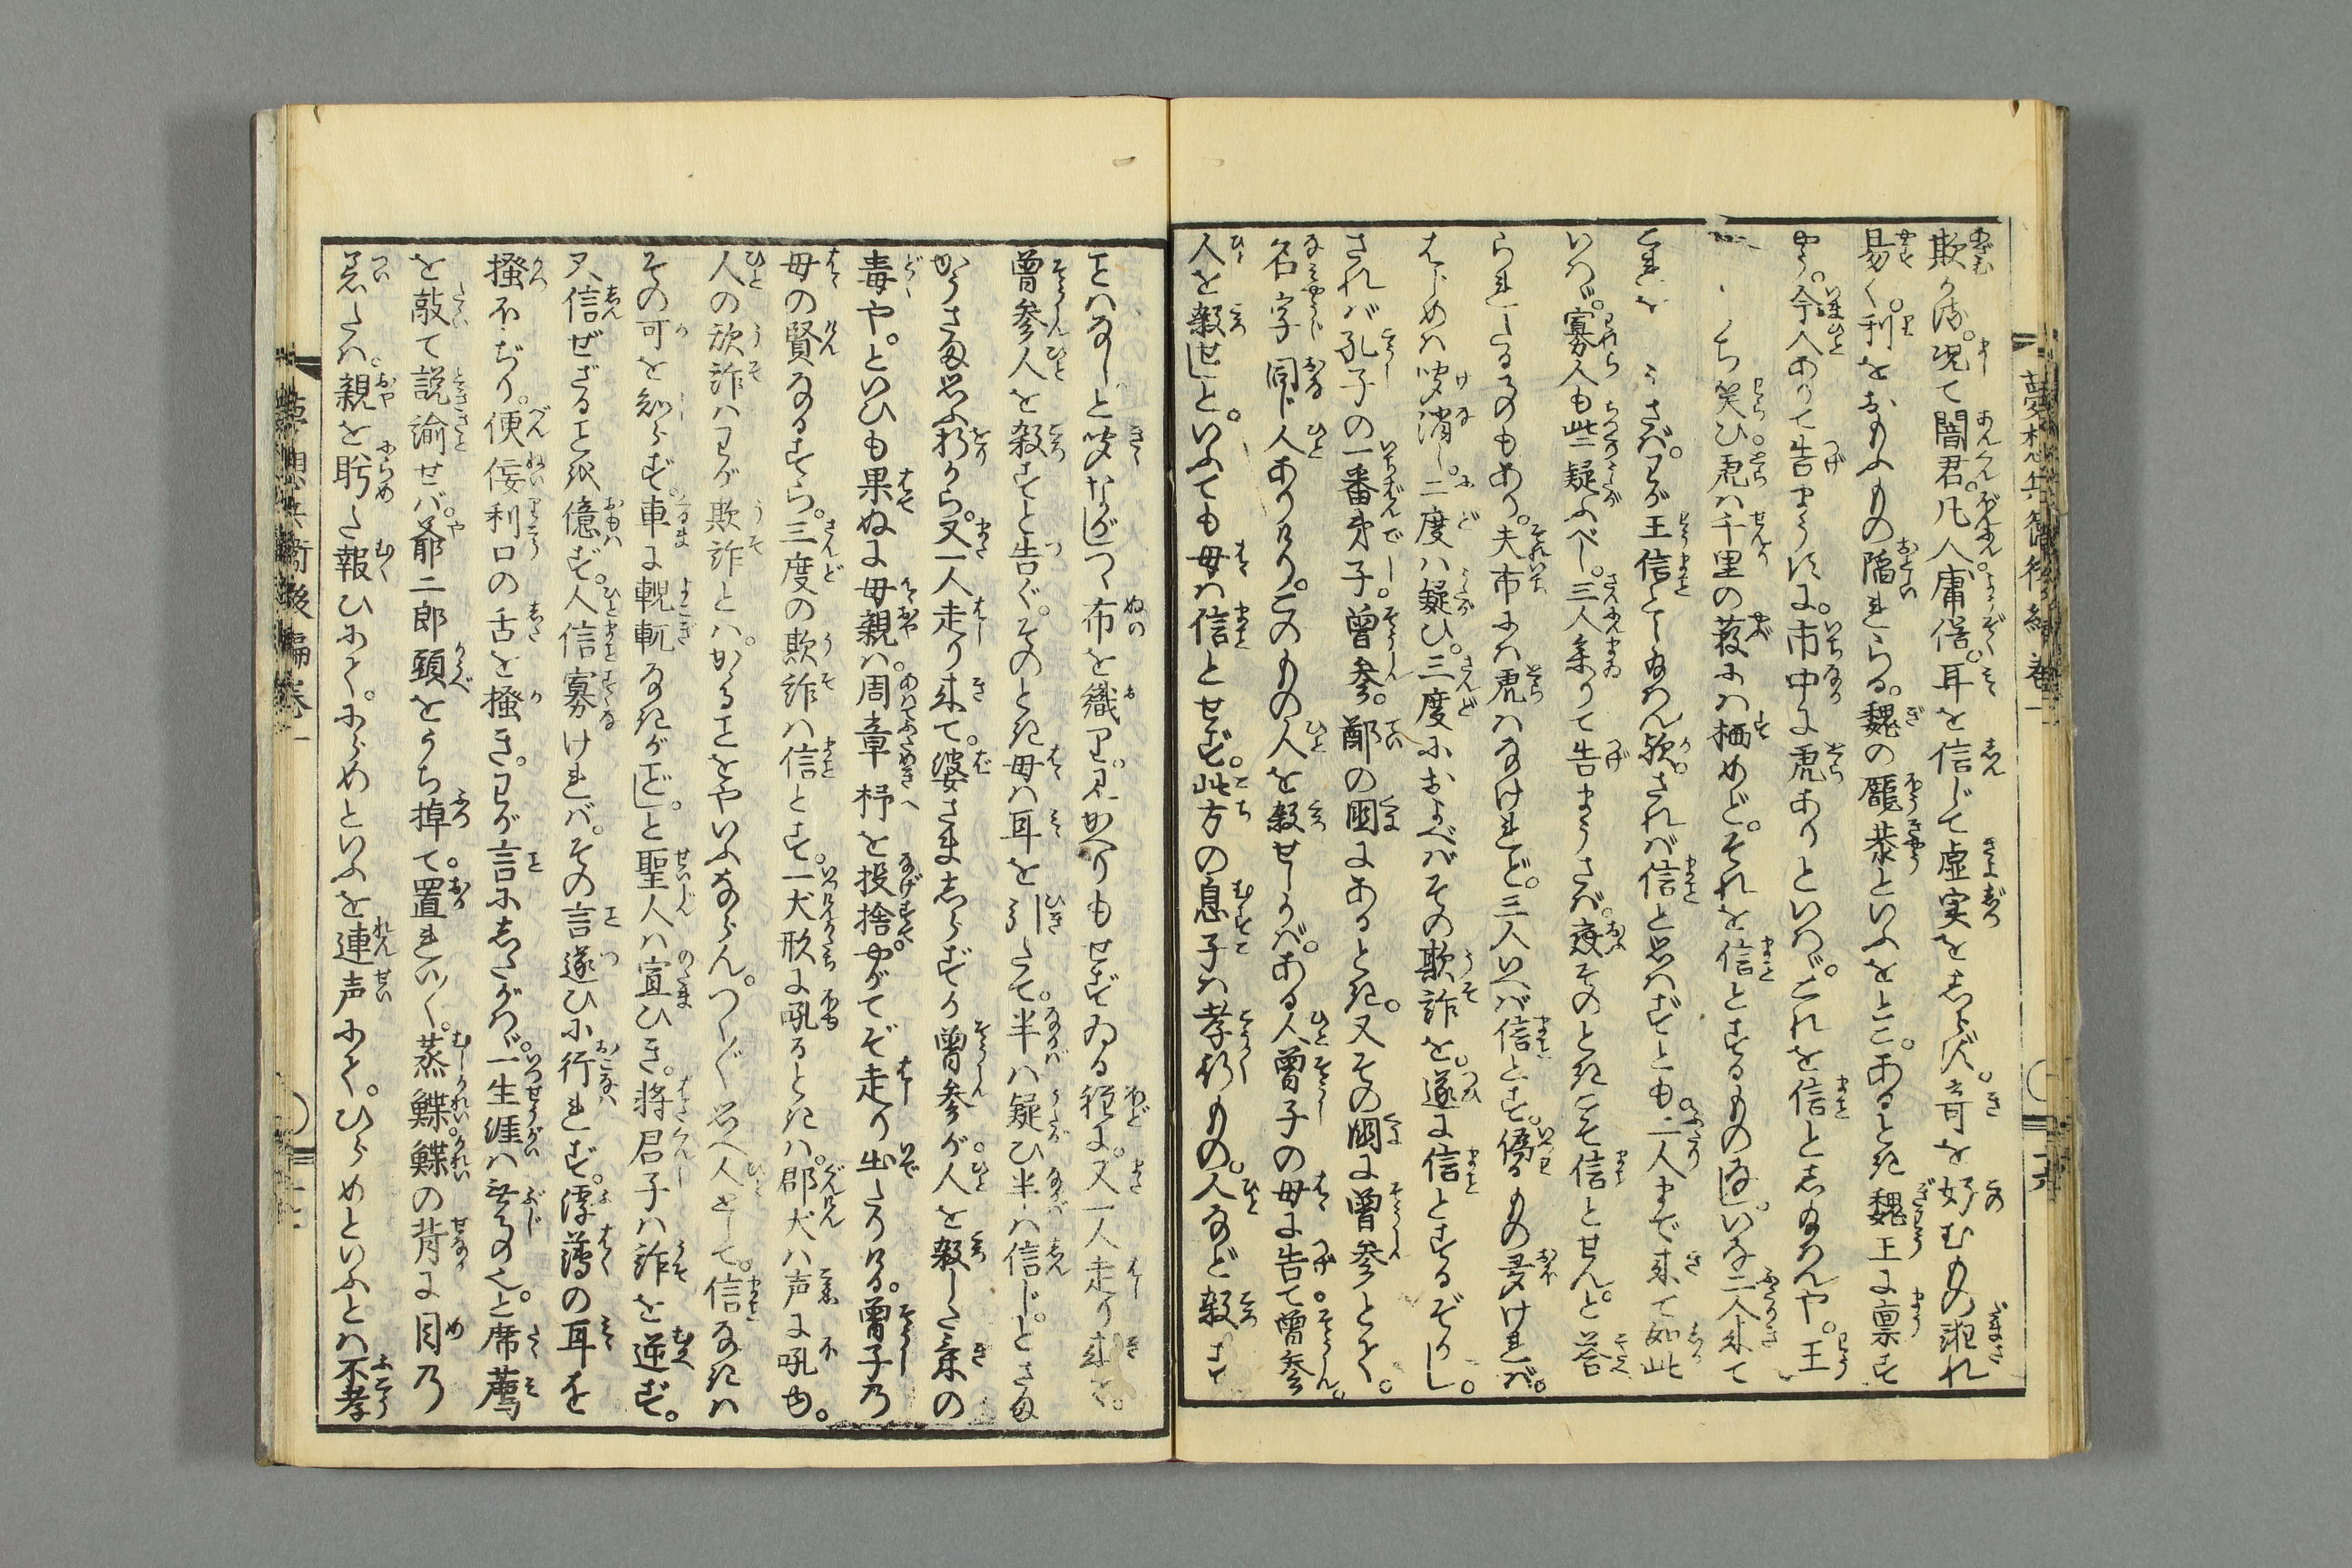 欺かる。况て闇君。凡人庸俗。耳を信じて虚実をしらず。奇を好むもの誑れ
易く。利をおもふもの陥れらる。魏の龐恭といふをとこ。あるとき魏王に禀す
やう。今人ありて告まうすに。市中に虎ありといはゞ。これを信としたまはんや。王
ち笑ひ。虎は千里の藪には栖めど。それを信とするものなし。いな二人来て
さば。わが王信としたまはん歟。されば信と思はずとも。二人まで来て如此
いはゞ。寡人も些疑ふべし。三人来りて告まうさば。夜そのときこそ信とせん。と答
られしたるものもあり。夫市には虎はなけれど。三人いへば信とす。偽るもの多ければ。
はじめは咲消し。二度は疑ひ。三度におよべばその欺詐を。遂に信とするぞかし。
されば孔子の一番弟子。曽参。鄭の国にあるとき。又その国に曽参とて。
名字同じ人ありけり。このもの人を殺せしかば。ある人曽子の母に告て。曽参。
人を殺せしと。いふても母は信とせず。此方の息子は孝行もの。人など殺す
ことはなしと咲ながしつゝ布を織り。見かへりもせずゐる程に。又一人走り来て。
曽参人を殺すと告ぐ。そのとき母は耳を引たて。半は疑ひ半は信じ。とさま
かうさま思ふ折から。又一人走り来て。婆さましらずか曽参が。人を殺した気の
毒や。といひも果ぬに母親は。周章杼を投捨。やがてぞ走り出たりける。曽子の
母の賢なるすら。三度の欺詐は信とす。一犬形に吼るときは。郡犬は声に吼ゆ。
人の欺詐はわが欺詐とは。かゝることをやいふならん。つら〳〵思へ人として。信なきは
その可を知らず。車に輗軏なきがごとし。と聖人は宣ひき。将君子は詐を逆ず。
又信ぜざることを億ず。人信寡ければ。その言遂ひに行れず。浮薄の耳を
掻ほぢり。便侫利口の舌を掻き。わが言にしたがはゞ。一生涯は無事のんと。席薦
を敲て説諭せば。爺二郎頭をうち掉て。置れい〳〵。蒸鰈。鰈の背に目の
著たは。親を眄た報ひにて。にらめといふを連声にて。ひらめといふとは不孝